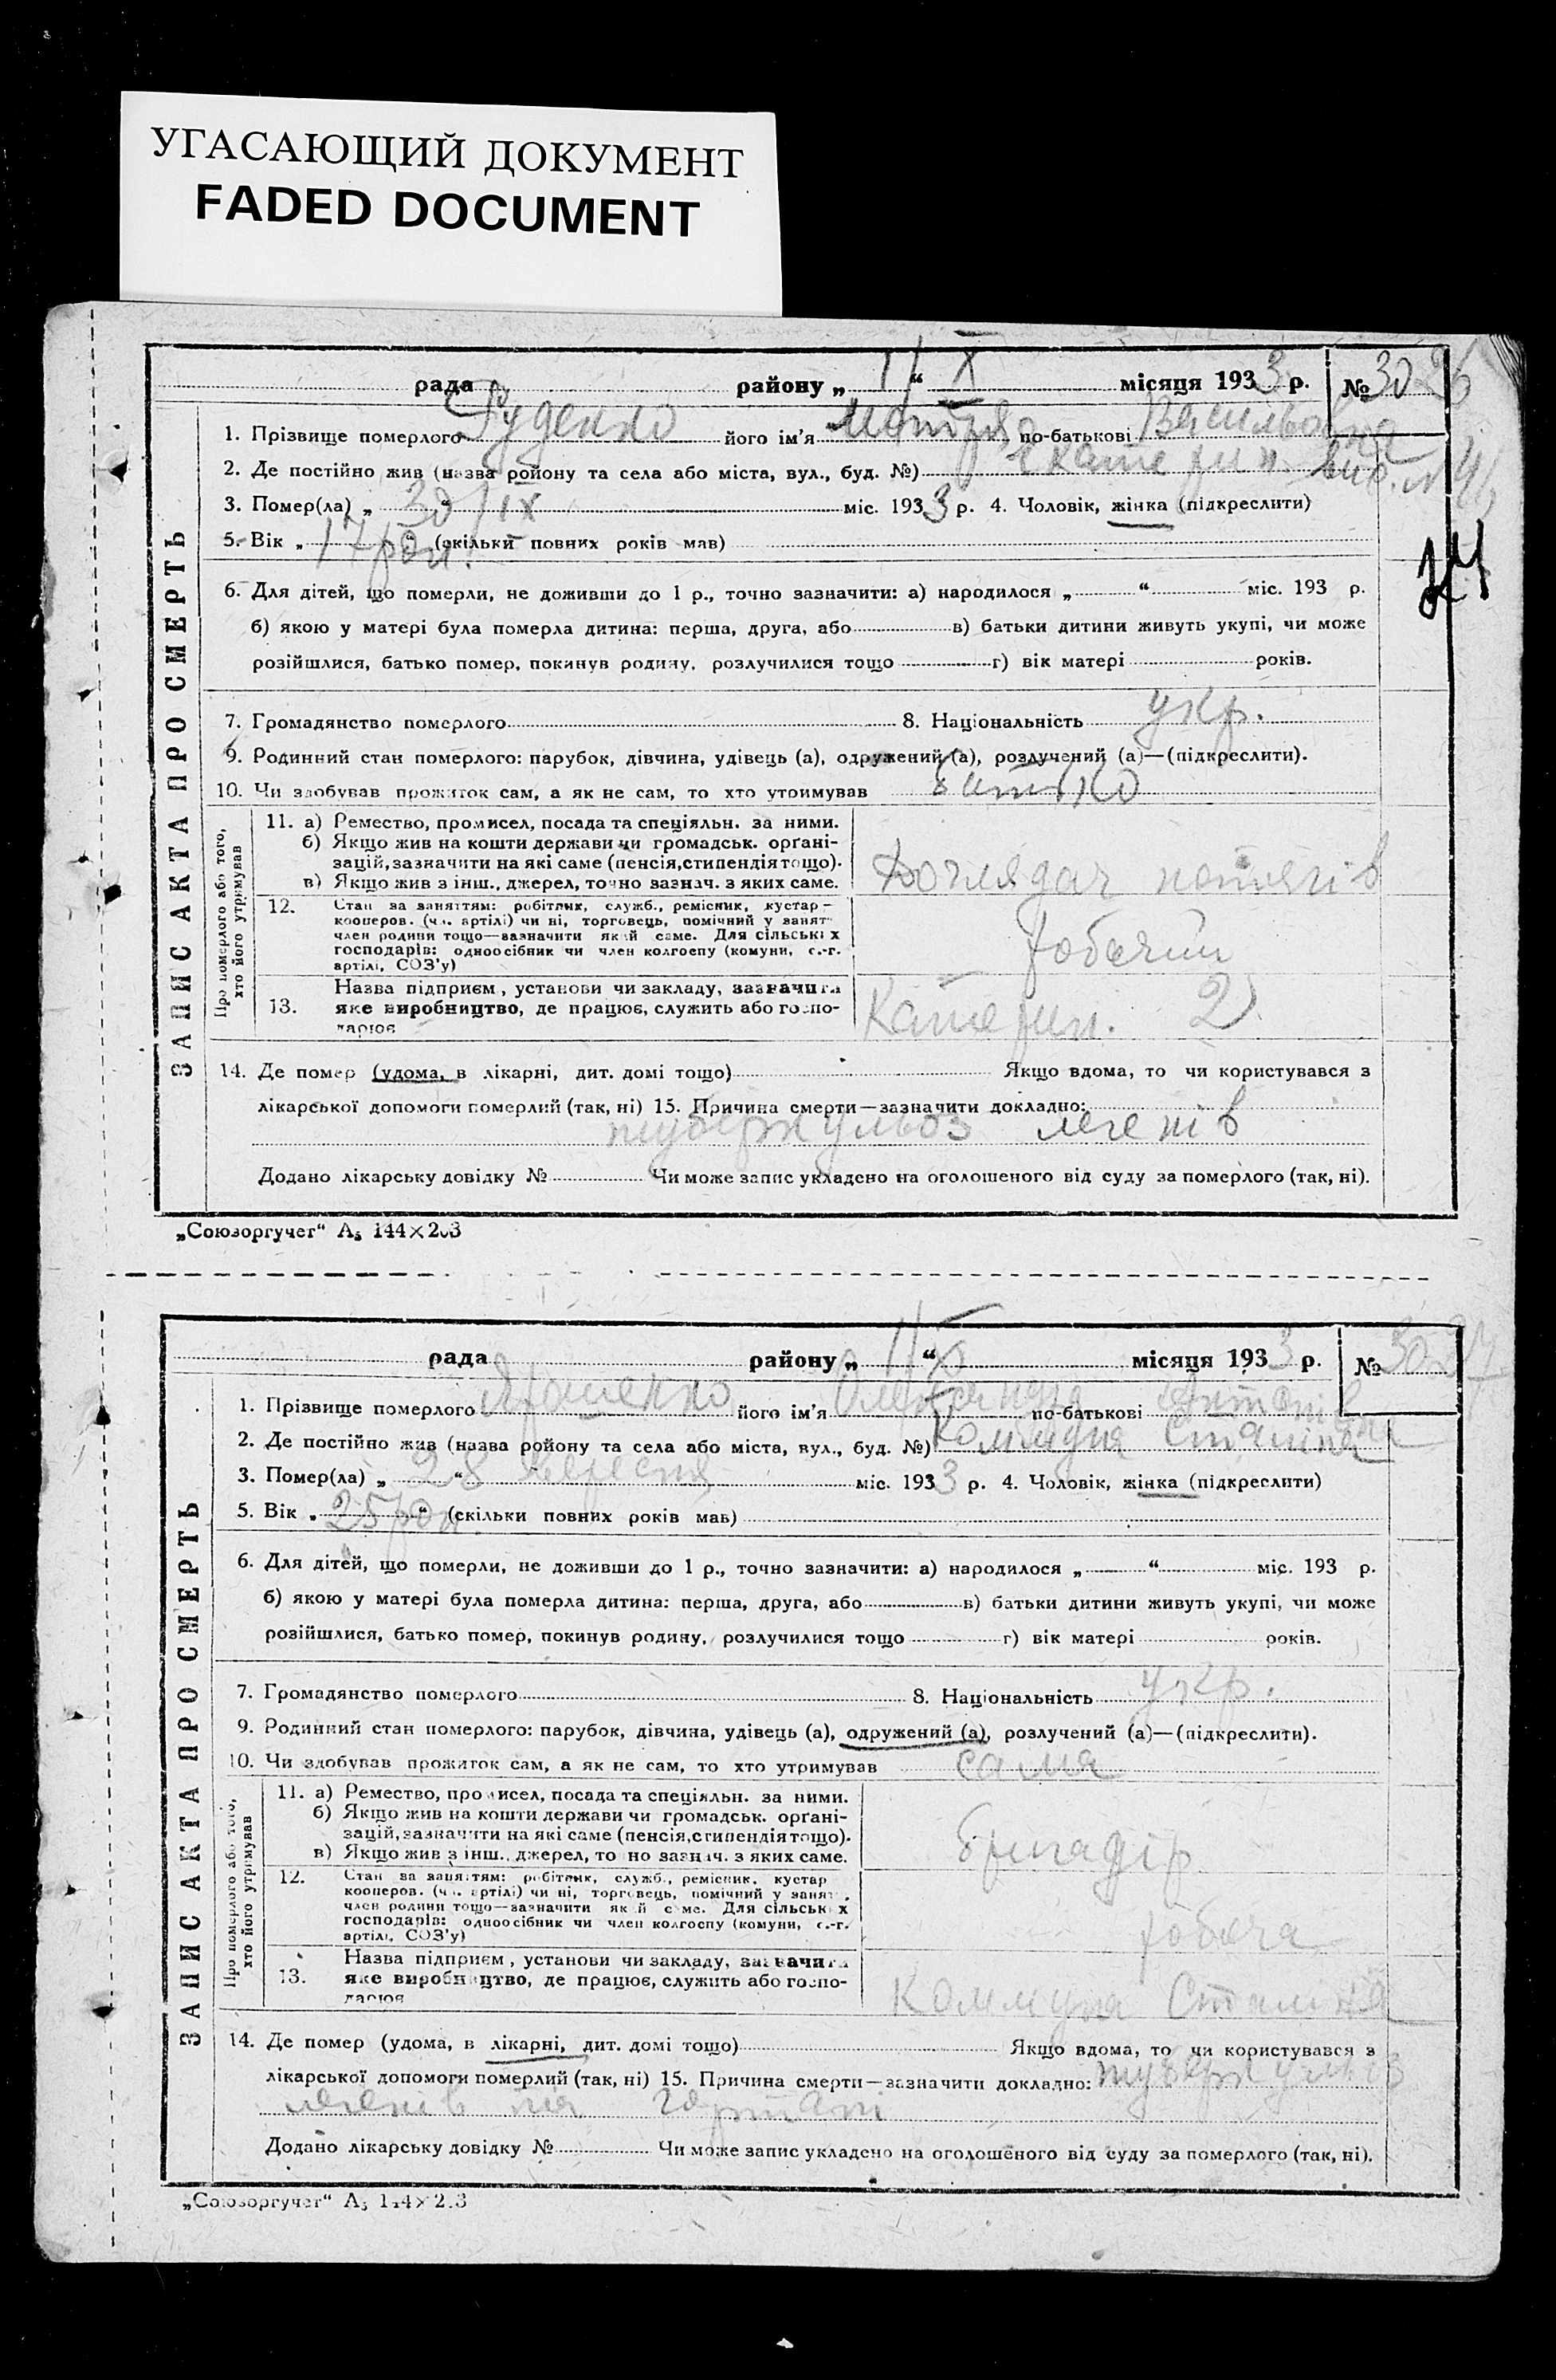 УГАСАЮЩИЙ ДОКУМЕНТ
FADED DOCUMENT
ЗАПИС АКТА ПРО СМЕРТЬ
рада району „ 1 / X “ місяця 1933 р. № 3026
1. Прізвище померлого Руденко його ім'я Мотря по-батькові Васильовна
2. Де постійно жив (назва району та села або міста, вул., буд. №) Катерин.
3. Помер(ла) „ 30 / IX “ міс. 1933 р. 4. Чоловік, жінка (підкреслити)
5. Вік „ 17 рок. “ (скільки повних років мав)
6. Для дітей, що померли, не доживши до 1 р., точно зазначити: а) народилося „ “ міс. 193 р.
б) якою у матері була померла дитина: перша, друга, або в) батьки дитини живуть укупі, чи може
розійшлися, батько помер, покинув родину, розлучилися тощо г) вік матері років.
7. Громадянство померлого 8. Національність укр.
9. Родинний стан померлого: парубок, дівчина, удівець (а), одружений (а), розлучений (а)—(підкреслити).
10. Чи здобував прожиток сам, а як не сам, то хто утримував батько
Про померлого або того, хто його утримував
11. а) Ремество, промисел, посада та спеціяльн. за ними.
б) Якщо жив на кошти держави чи громадськ. орґані-
зацій, зазначити на які саме (пенсія, стипендія тощо).
в) Якщо жив з інш., джерел, точно зазнач. з яких саме.
Доглядач потягів
12. Стан за заняттям: робітник, служб., ремісник, кустар—
кооперов. (чл. артілі) чи ні, торговець, помічний у занят
член родини тощо—зазначити який саме. Для сільських
господарів: одноосібник чи член колгоспу (комуни, с.-г.
артілі, СОЗ'у)
робочий
13. Назва підприєм, установи чи закладу, зазначити
яке виробництво, де працює, служить або госпо-
дарює
Катерин. 2
14. Де помер (удома, в лікарні, дит. домі тощо) Якщо вдома, то чи користувався з
лікарської допомоги померлий (так, ні) 15. Причина смерти—зазначити докладно:
туберкульоз легенів
Додано лікарську довідку № Чи може запис укладено на оголошеного від суду за померлого (так, ні).
„Союзоргучет“ А₅ 144×203
ЗАПИС АКТА ПРО СМЕРТЬ
рада району „ 1/X “ місяця 1933 р. № 3027
1. Прізвище померлого його ім'я Олександра по-батькові Антонівна
2. Де постійно жив (назва району та села або міста, вул., буд. №) Коммуна Сталіна
3. Помер(ла) „ 28 “ вересня міс. 1933 р. 4. Чоловік, жінка (підкреслити)
5. Вік „ 25 рок “ (скільки повних років мав)
6. Для дітей, що померли, не доживши до 1 р., точно зазначити: а) народилося „ “ міс. 193 р.
б) якою у матері була померла дитина: перша, друга, або в) батьки дитини живуть укупі, чи може
розійшлися, батько помер, покинув родину, розлучилися тощо г) вік матері років.
7. Громадянство померлого 8. Національність укр.
9. Родинний стан померлого: парубок, дівчина, удівець (а), одружений (а), розлучений (а)—(підкреслити).
10. Чи здобував прожиток сам, а як не сам, то хто утримував сама
Про померлого або того, хто його утримував
11. а) Ремество, промисел, посада та спеціяльн. за ними.
б) Якщо жив на кошти держави чи громадськ. орґані-
зацій, зазначити на які саме (пенсія, стипендія тощо).
в) Якщо жив з інш., джерел, точно зазнач. з яких саме.
бригадір
12. Стан за заняттям: робітник, служб., ремісник, кустар
кооперов. (чл. артілі) чи ні, торговець, помічний у занят
член родини тощо—зазначити який саме. Для сільських
господарів: одноосібник чи член колгоспу (комуни, с.-г.
артілі, СОЗ'у)
робоча
13. Назва підприєм, установи чи закладу, зазначити
яке виробництво, де працює, служить або госпо-
дарює
Коммуна Сталина
14. Де помер (удома, в лікарні, дит. домі тощо) Якщо вдома, то чи користувався з
лікарської допомоги померлий (так, ні) 15. Причина смерти—зазначити докладно: туберкульоз
легенів та гортані
Додано лікарську довідку № Чи може запис укладено на оголошеного від суду за померлого (так, ні).
„Союзоргучет“ А₅ 144×203